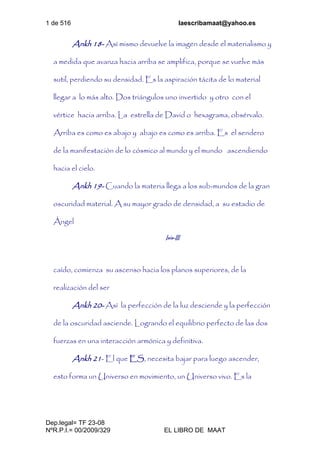 1 de 516 laescribamaat@yahoo.es
Ankh 18- Así mismo devuelve la imagen desde el materialismo y
a medida que avanza hacia arriba se amplifica, porque se vuelve más
sutil, perdiendo su densidad. Es la aspiración tácita de lo material
llegar a lo más alto. Dos triángulos uno invertido y otro con el
vértice hacia arriba. La estrella de David o hexagrama, obsérvalo.
Arriba es como es abajo y abajo es como es arriba. Es el sendero
de la manifestación de lo cósmico al mundo y el mundo ascendiendo
hacia el cielo.
Ankh 19- Cuando la materia llega a los sub-mundos de la gran
oscuridad material. A su mayor grado de densidad, a su estadio de
Ángel
Isis-III
caído, comienza su ascenso hacia los planos superiores, de la
realización del ser
Ankh 20- Así la perfección de la luz desciende y la perfección
de la oscuridad asciende. Logrando el equilibrio perfecto de las dos
fuerzas en una interacción armónica y definitiva.
Ankh 21- El que ES, necesita bajar para luego ascender,
esto forma un Universo en movimiento, un Universo vivo. Es la
Dep.legal= TF 23-08
NºR.P.I.= 00/2009/329 EL LIBRO DE MAAT